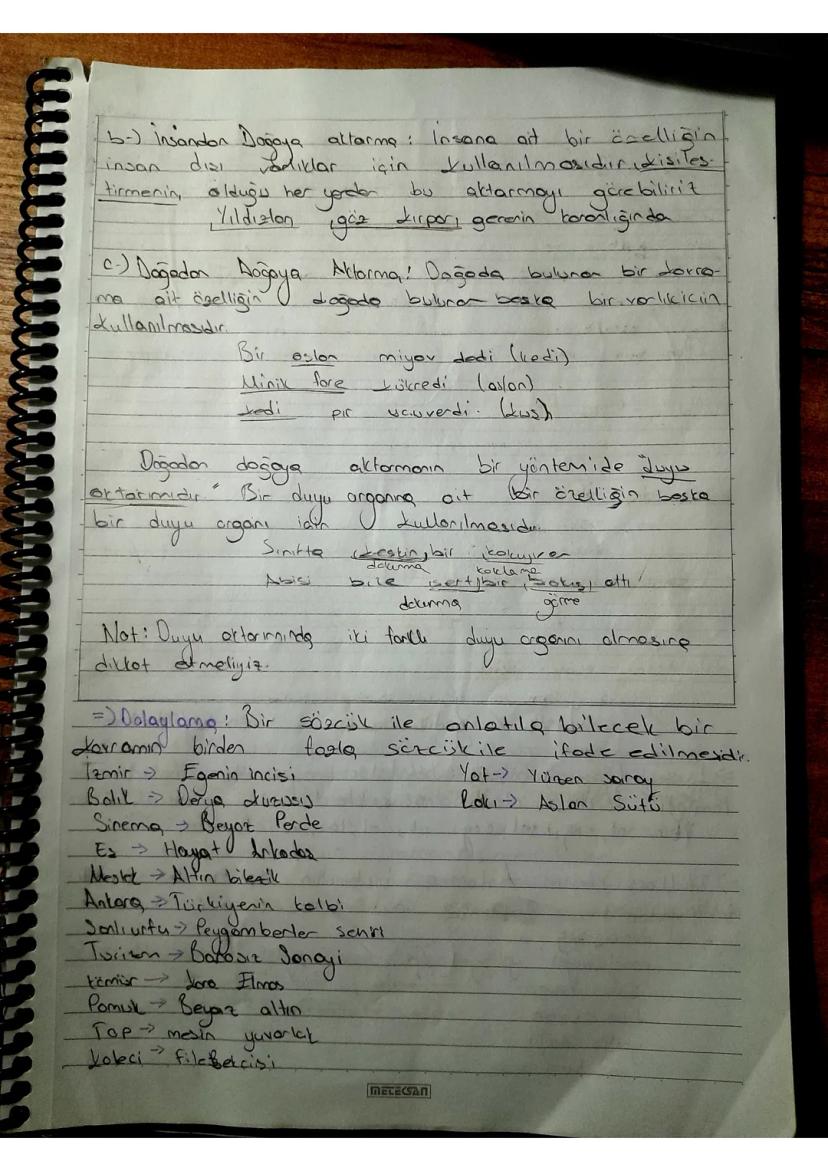 b-) İnsandan Doğaya aktarma : İnsana ait bir özelliğin
insan dışı varlıklar için kullanılmasıdır. Kişileş-
tirmenin, olduğu her yerden bu aktarmayı görebiliriz
Yıldızlan göz kırpar, gecenin karanlığında
c-) Doğadan Doğaya Aktarma! Doğada bulunan bir kavra-
ma ait özelliğin doğada bulunan başka bir varlık için
kullanılmasıdır.
Bir aslan miyav dedi (kedi)
Minik fare kükredi (aslan)
kedi pır uçuverdi. (kuş)
Doğadan doğaya aktarmanın bir yöntemi de "duyu
aktarımıdır" Bir duyu organına ait bir özelliğin başka
bir duyu organı için kullanılmasıdır.
Sınıfta keskin bir koku
dokunma koklama
Abisi bile sert bir bakış attı
dokunma görme
Not: Duyu aktarımında iki farklı duyu organını olmasına
dikkat etmeliyiz.
=) Dolaylama : Bir sözcük ile anlatıla bilecek bir
kavramın birden fazla sözcük ile ifade edilmesidir.
İzmir -> Egenin incisi Yat -> Yüzen saray
Balık -> Derya kuzusu Rakı -> Aslan Sütü
Sinema -> Beyaz Perde
Eş -> Hayat Arkadaş
Meslek -> Altın bilezik
Ankara -> Türkiyenin kalbi
Şanlıurfa -> Peygamberler şehri
Turizm -> Bacasız Sanayi
kömür -> Kara Elmas
Pamuk -> Beyaz altın
Top -> meşin yuvarlak
Kaleci -> file bekcisi
METEKSAN